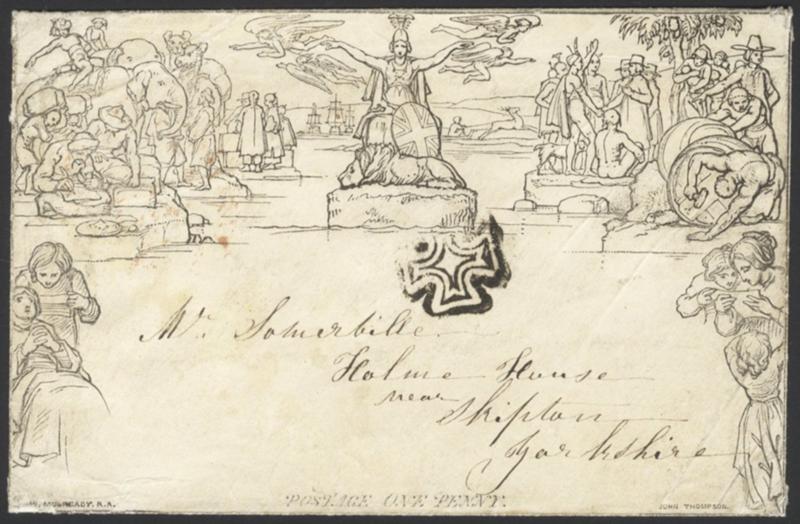 Mr. Somerville
Holme House
near
Skipton
Yorkshire
W. MULREADY. R.A.
POSTAGE ONE PENNY.
JOHN THOMPSON.